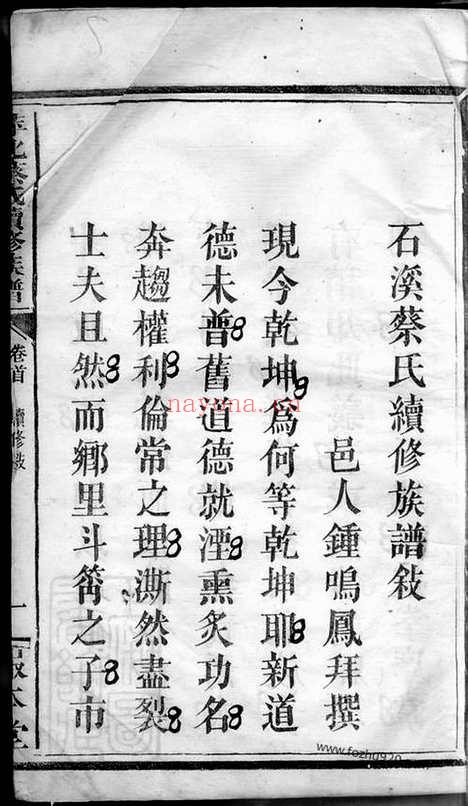 石溪蔡氏續修族譜敍
邑人鍾鳴鳳拜撰
現今乾坤為何等乾坤耶新道
德未普舊道德就湮熏炙功名
奔趨權利倫常之理澌然盡裂
士夫且然而鄉里斗筲之子市
蔡氏續修族譜
卷首
續修敍
一
敦本堂
nayona.cn
www.fozhu920